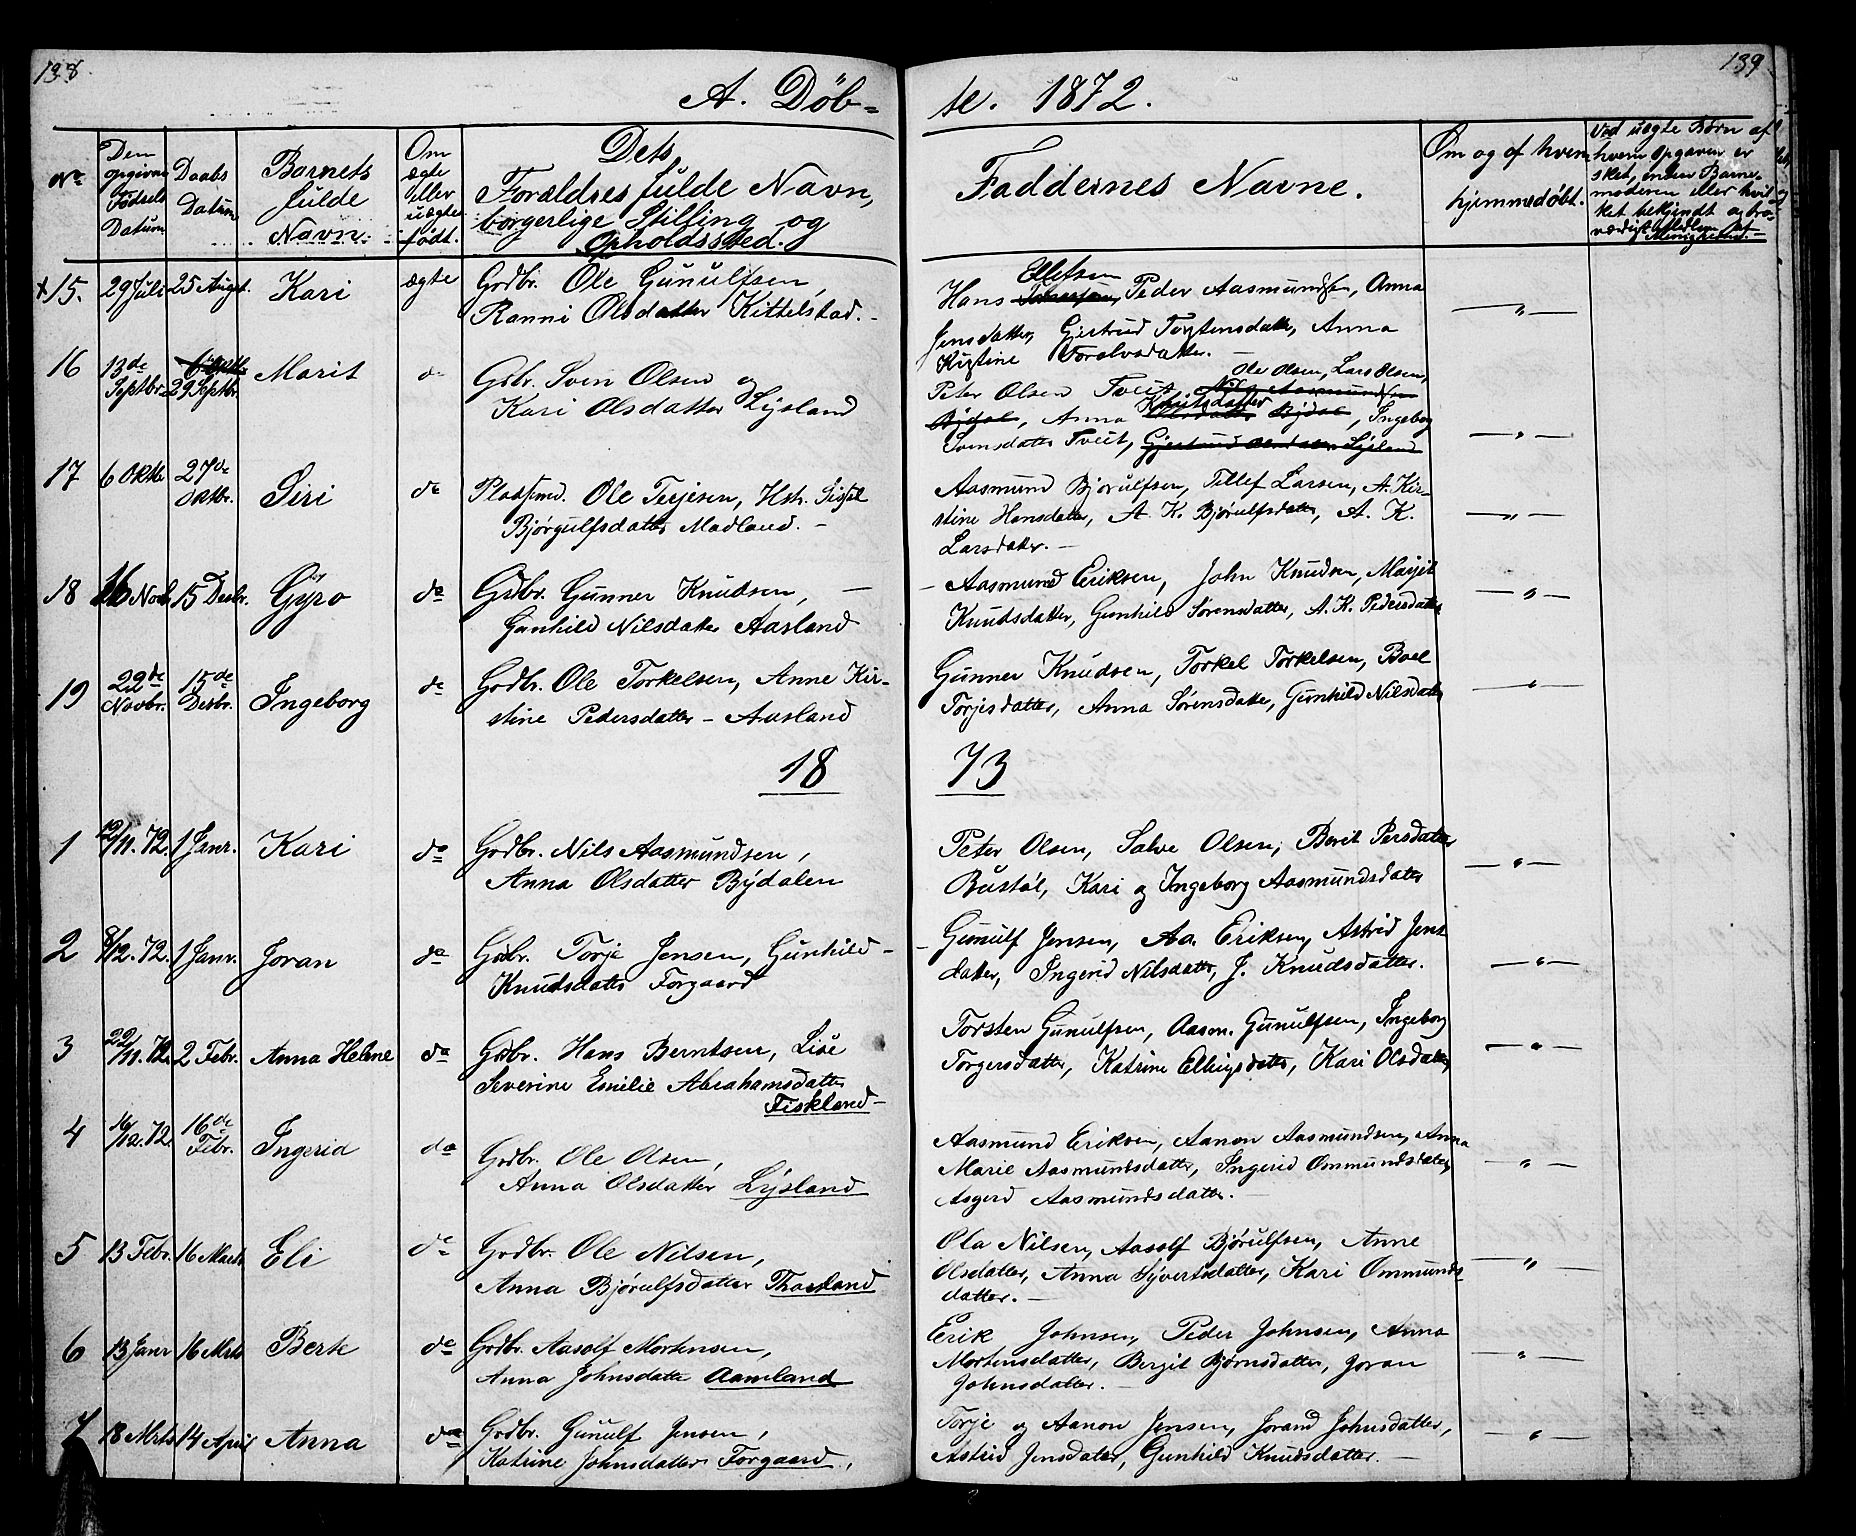 138.
139
A. Døb-
te. 1872.
No
Den opgivne Fødsels Datum
Daabs Datum
Barnets fulde Navn.
Om ægte eller uægte født.
Dets Forældres fulde Navn, borgerlige Stilling og Opholdssted.
Faddernes Navne.
Om og af hvem hjemmedøbt.
Ved uægte Børn af hvem Opgaven er sket, enten Barnemoderen eller hvilket bekjendt og troværdigt Medlem af Menigheden.
+15. 29 Juli 25 August. Kari ægte Gdbr. Ole Gunulfsen,
Ranni Olsdatter Kittelstad. -
Ellefsen
Hans Peder Aasmundsen, Anna
Jensdatter, Gjertrud Torstensdatter, Anna
Kirstine Toralvsdatter. -
16 13de Septbr. 29 Septbr. Marit do Gdbr. Sven Olsen og
Kari Olsdatter Lysland
Ole Olsen, Lars Olsen,
Peter Olsen Tveit, Nils Aasmundsen
Bydal, Anna Knutsdatter Bydal, Ingeborg
Svensdatter Tveit, Gjertrud Lysland
17 6 Oktbr 27de Oktbr. Siri do Pladsmd. Ole Terjesen, Hstr. Sissel
Bjørgulfsdatter Madland. -
Aasmund Bjørulfsen, Tellef Larsen, A. Kir-
stine Hansdatter, A. K. Bjørulfsdatter, A. K.
Larsdatter. -
18 16 Novb. 15 Desbr. Gyro do Gdbr. Gunner Knudsen, -
Gunhild Nilsdatter Aasland
- Aasmund Eriksen, John Knudsen, Marjit
Knudsdatter, Gunhild Sørensdatter, A. K. Pedersdatter
19 22de Novbr. 15de Desbr. Ingeborg do Gdbr. Ole Torkelsen, Anne Kir-
stine Pedersdatter - Aasland
Gunner Knudsen, Torkel Torkelsen, Boel
Torjisdatter, Anna Sørensdatter, Gunhild Nilsdatter
18 73
1 12/11. 72. 1 Janr. Kari do Gdbr. Nils Aasmundsen,
Anna Olsdatter Bydalen
Peter Olsen, Salve Olsen, Berit Persdatter
Bustøl, Kari og Ingeborg Aasmundsdatter
2 8/12. 72. 1 Janr. Joran do Gdbr. Torje Jensen, Gunhild -
Knudsdatter Forgaard
- Gunulf Jensen, Aa. Eriksen, Astrid Jens
datter, Ingerid Nilsdatter, J. Knudsdatter.
3 22/11. 72. 2 Febr. Anna Helene do Gdbr. Hans Berntsen, Lise
Severine Emilie Abrahamsdatter
Fiskland -
Torsten Gunulfsen, Aasm. Gunulfsen, Ingeborg
Torgersdatter, Katrine Ellingsdatter, Kari Olsdatter
4 16/12. 72. 16de Febr. Ingerid do Gdbr. Ole Olsen,
Anna Olsdatter Lysland
Aasmund Eriksen, Aanon Aasmundsen, Anna
Marie Aasmundsdatter, Ingerid Ommundsdatter
Asgerd Aasmundsdatter. -
5 13 Febr. 16 Marts Eli do Gdbr. Ole Nilsen,
Anna Bjørulfsdatter Thorsland
Ola Nilsen, Aasolf Bjørulfsen, Anne
Olsdatter, Anna Syvertsdatter, Kari Ommunds-
datter. -
6 13 Janr 16 Mrts Berte do Gdbr. Aasolf Mortensen,
Anna Johnsdatter Aamland
Erik Johnsen, Peder Johnsen, Anna
Mortensdatter, Bergit Bjørnsdatter, Joran
Johnsdatter. -
7 18 Mrts 14 April Anna do Gdbr. Gunulf Jensen,
Katrine Johnsdatter Forgaard.
Torje og Aanon Jensen, Jorand Johnsdatter,
Astrid Jensdatter, Gunhild Knudsdatter. -